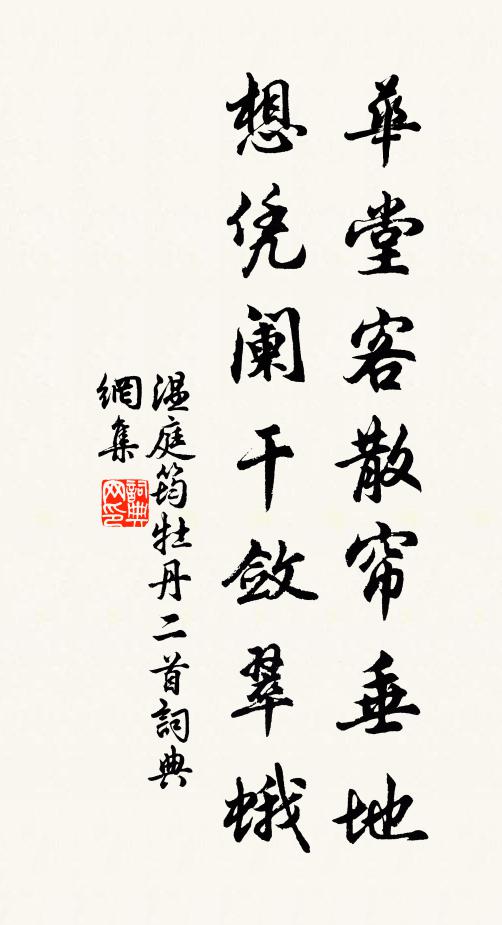 華堂客散帘垂地
想凭阑干敛翠蛾
温庭筠牡丹二首詞典
網集
詞典
网印